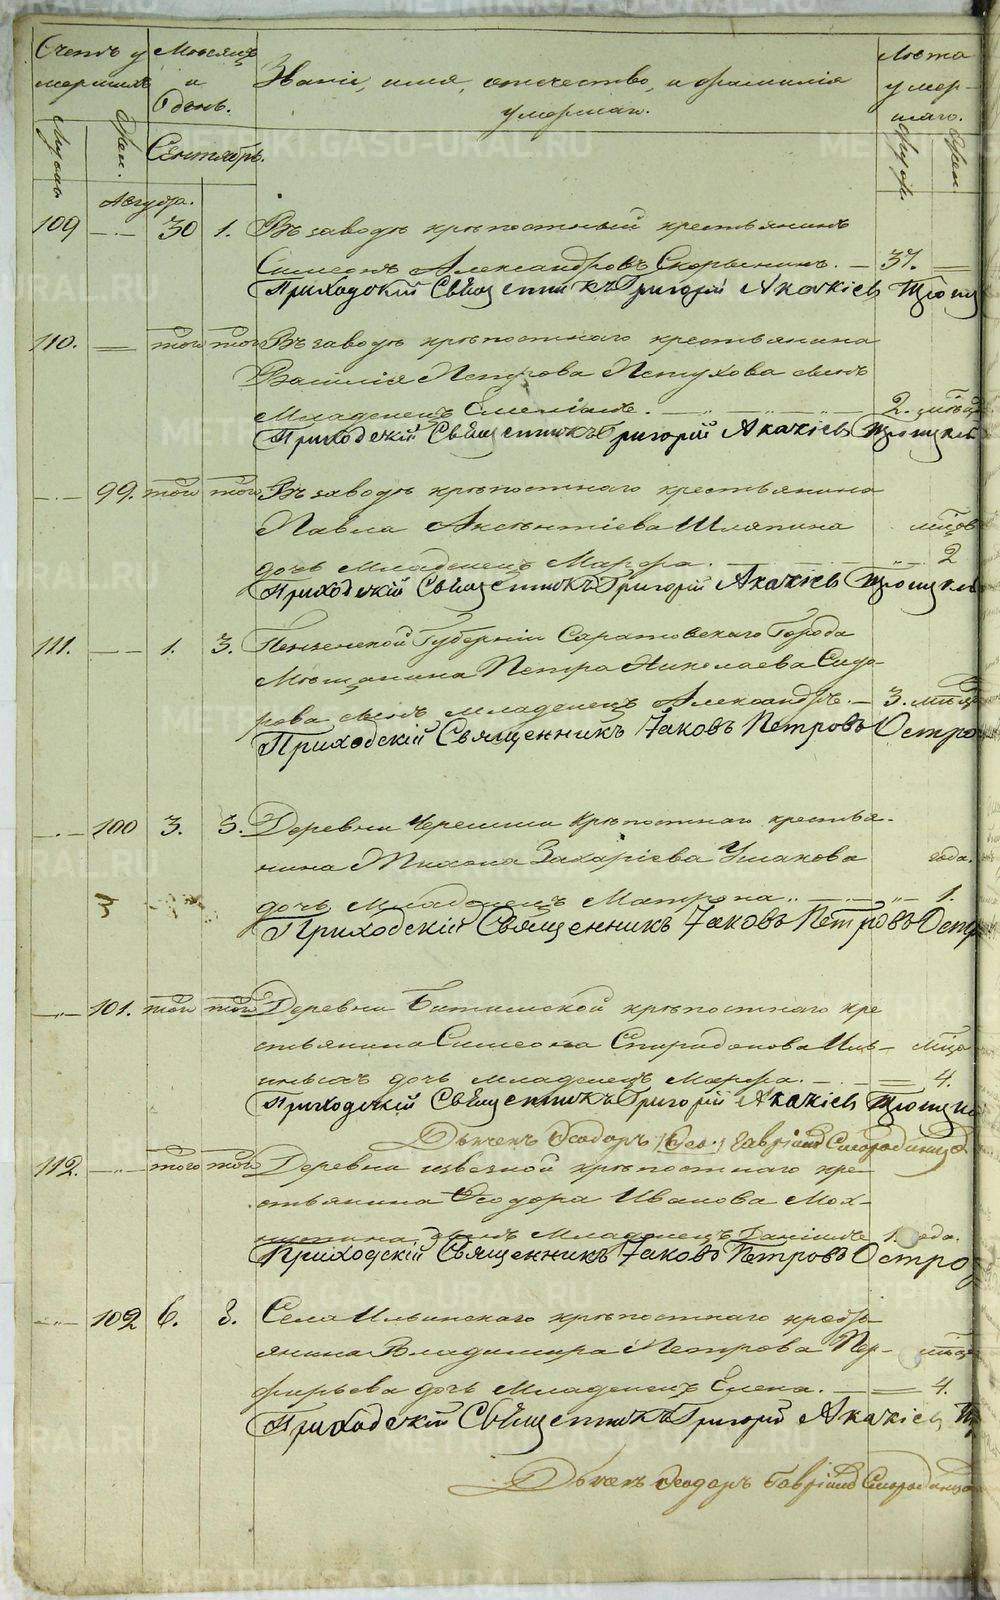 Счетъ у Месяцъ Званіе, имя, отечество, и фамилія Лѣта
мершихъ и умершаго. умер-
день. шаго.
Муж. Жен. Сентябрь. Муж. Жен.
Августа.
109 30 1. Въ заводѣ крѣпостный крестьянинъ
Симеонъ Александровъ Скорынинъ. 37.
Приходскій Священникъ Григорій Акакіевъ
110. того того Въ заводѣ крѣпостнаго крестьянина
Василія Петрова Пѣтухова сынъ
Младенецъ Емеліанъ. 2.
Приходскій Священникъ Григорій Акакіевъ
99. того того Въ заводѣ крѣпостнаго крестьянина
Павла Аксентіева Шляпина
дочь Младенецъ Марфа. 2
Приходскій Священникъ Григорій Акакіевъ
111. 1. 3. Пензенской Губерніи Саратовскаго Города
Мѣщанина Петра Николаева Сидо-
рова сынъ младенецъ Александръ. 3.
Приходскій Священникъ Іаковъ Петровъ Остро
100 3. 3. Деревни Черемши Крѣпостнаго крестья-
нина Михаила Захаріева Ушакова года.
дочь Младенецъ Матрона 1.
Приходскій Священникъ Іаковъ Петровъ Остр
101. того того Деревни Битимской крѣпостнаго кре
стьянина Симеона Спиридонова Иль-
иныхъ дочь младенецъ Марфа. 4.
Приходскій Священникъ Григорій Акакіевъ
Дьячекъ Ѳеодоръ
112. того того Деревни извезной крѣпостнаго кре-
стьянина Ѳеодора Иванова Мох-
сынъ Младенецъ Даніилъ 1. года.
Приходскій Священникъ Іаковъ Петровъ Остро
102 6. 8. Села Ильинскаго крѣпостнаго кресть-
янина Владимира Петрова Пер-
фирьева дочь Младенецъ Елена. 4.
Приходскій Священникъ Григорій Акакіевъ
Дьячекъ Ѳеодоръ
METRIKI.GASO-URAL.RU